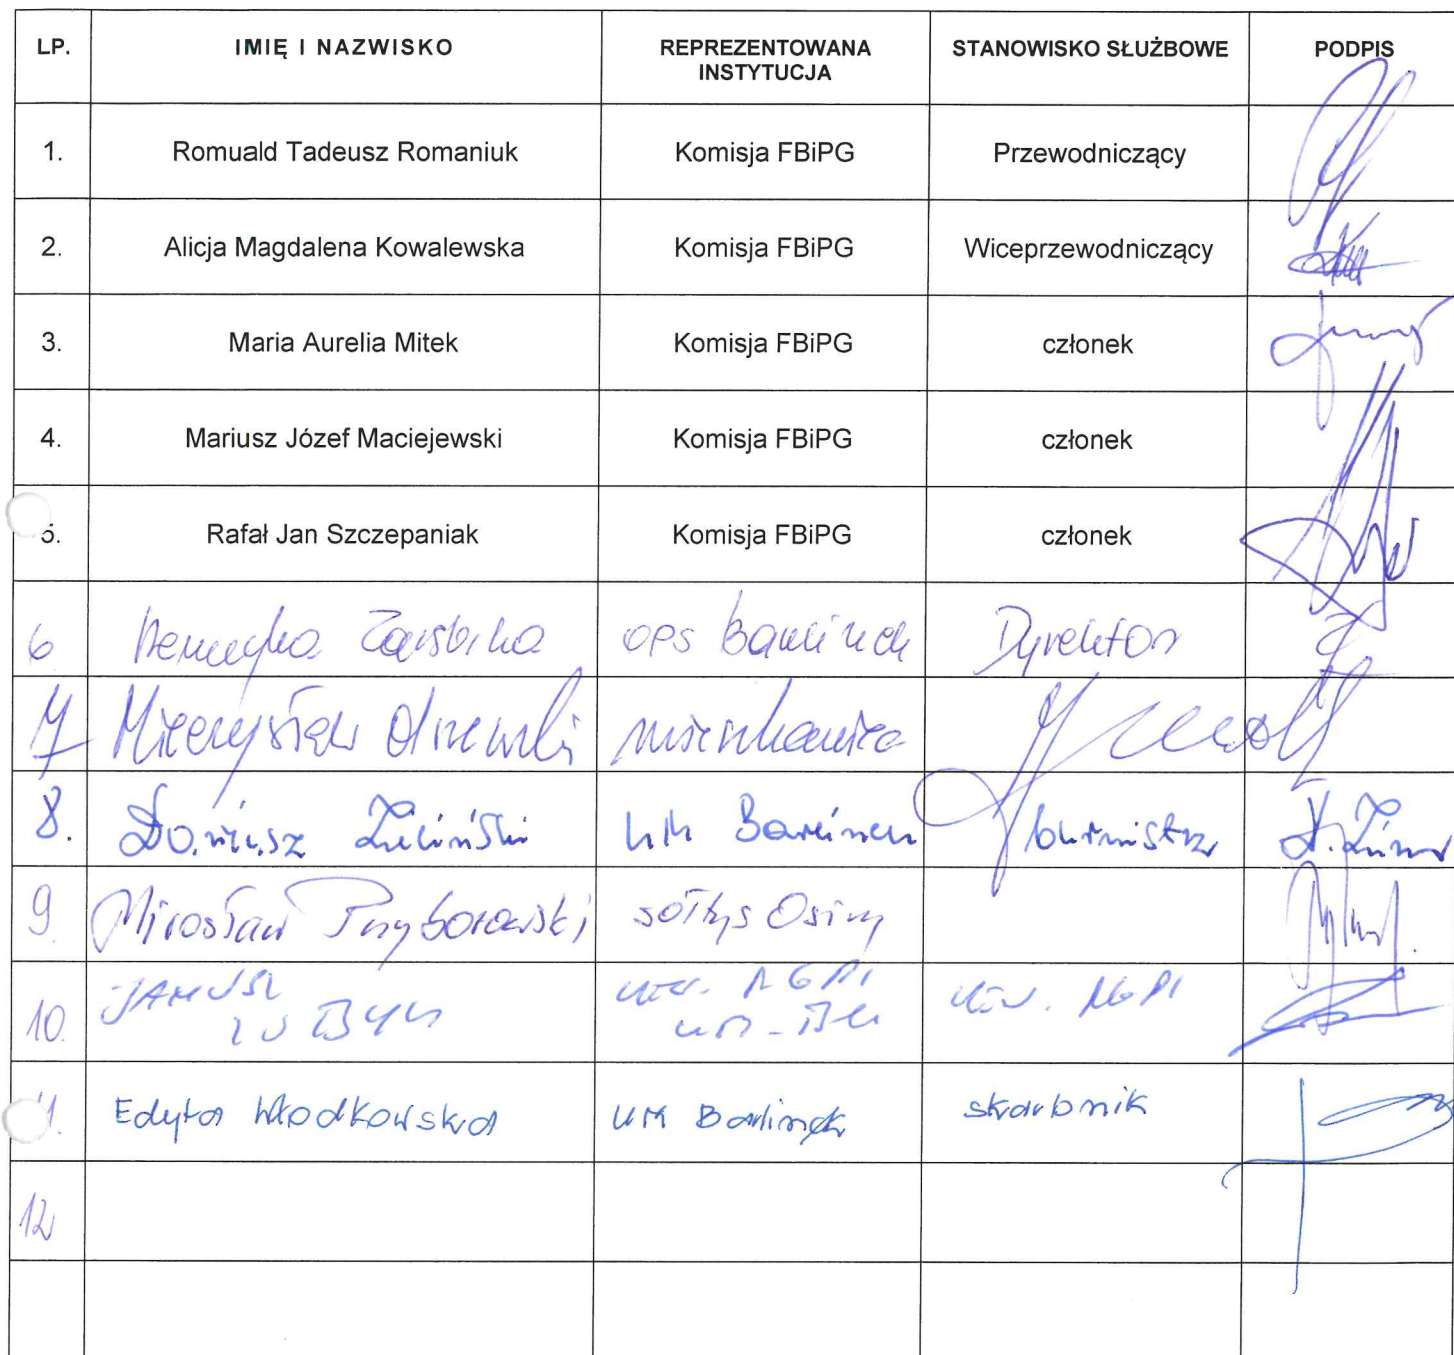 LP. IMIĘ I NAZWISKO REPREZENTOWANA INSTYTUCJA STANOWISKO SŁUŻBOWE PODPIS
1. Romuald Tadeusz Romaniuk Komisja FBiPG Przewodniczący
2. Alicja Magdalena Kowalewska Komisja FBiPG Wiceprzewodniczący
3. Maria Aurelia Mitek Komisja FBiPG członek
4. Mariusz Józef Maciejewski Komisja FBiPG członek
5. Rafał Jan Szczepaniak Komisja FBiPG członek
6 OPS Barlinek Dyrektor
7 Mieczysław mieszkaniec
8. Dariusz Zieliński UM Barlinek burmistrz D. Zieliński
9 Mirosław Przyborowski sołtys Osiny
10. JANUSZ
11. Edyta Włodkowska UM Barlinek skarbnik
12